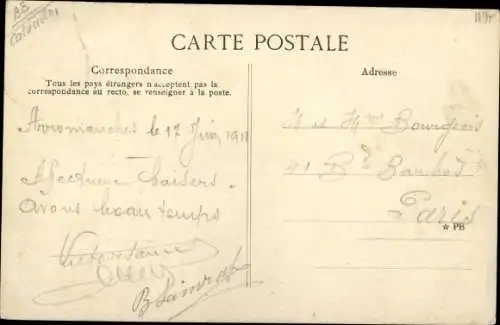 AB
Calvados
CARTE POSTALE
Correspondance
Tous les pays étrangers n'acceptent pas la
correspondance au recto, se renseigner à la poste.
Arromanches le 17 Juin 1911
Affectueux baisers
avons beau temps
Adresse
M et Mme Bourgeois
41 Bd Barbès
Paris
☆ PB